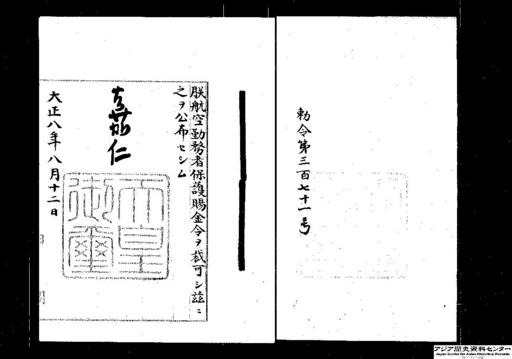 勅令第三百七十一号
朕航空勤務者保護賜金令ヲ裁可シ茲ニ
之ヲ公布セシム
嘉仁
天皇御璽
大正八年八月十二日
アジア歴史資料センター
Japan Center for Asian Historical Records